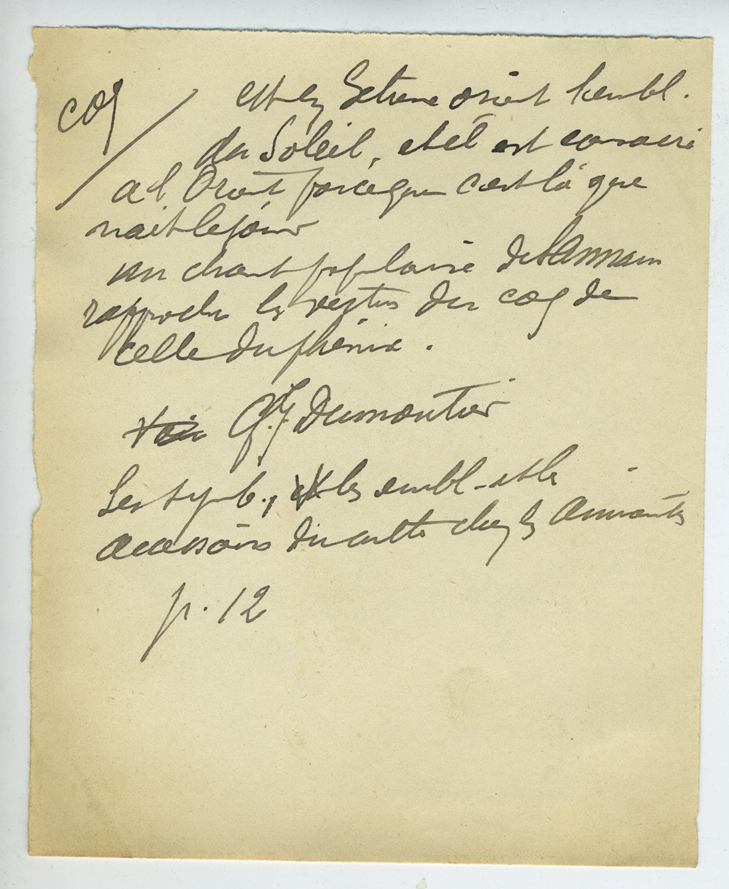 coq
est en Extreme orient l'embl.
du Soleil, et il est consacré
a l'Orient parceque c'est là que
nait le jour
un chant populaire de l'Annam
rapproche les vertus du coq de
celle du phénix.
G. Dumoutier
Les symb., les embl. et les
accessoires du culte chez les Annamites
p. 12